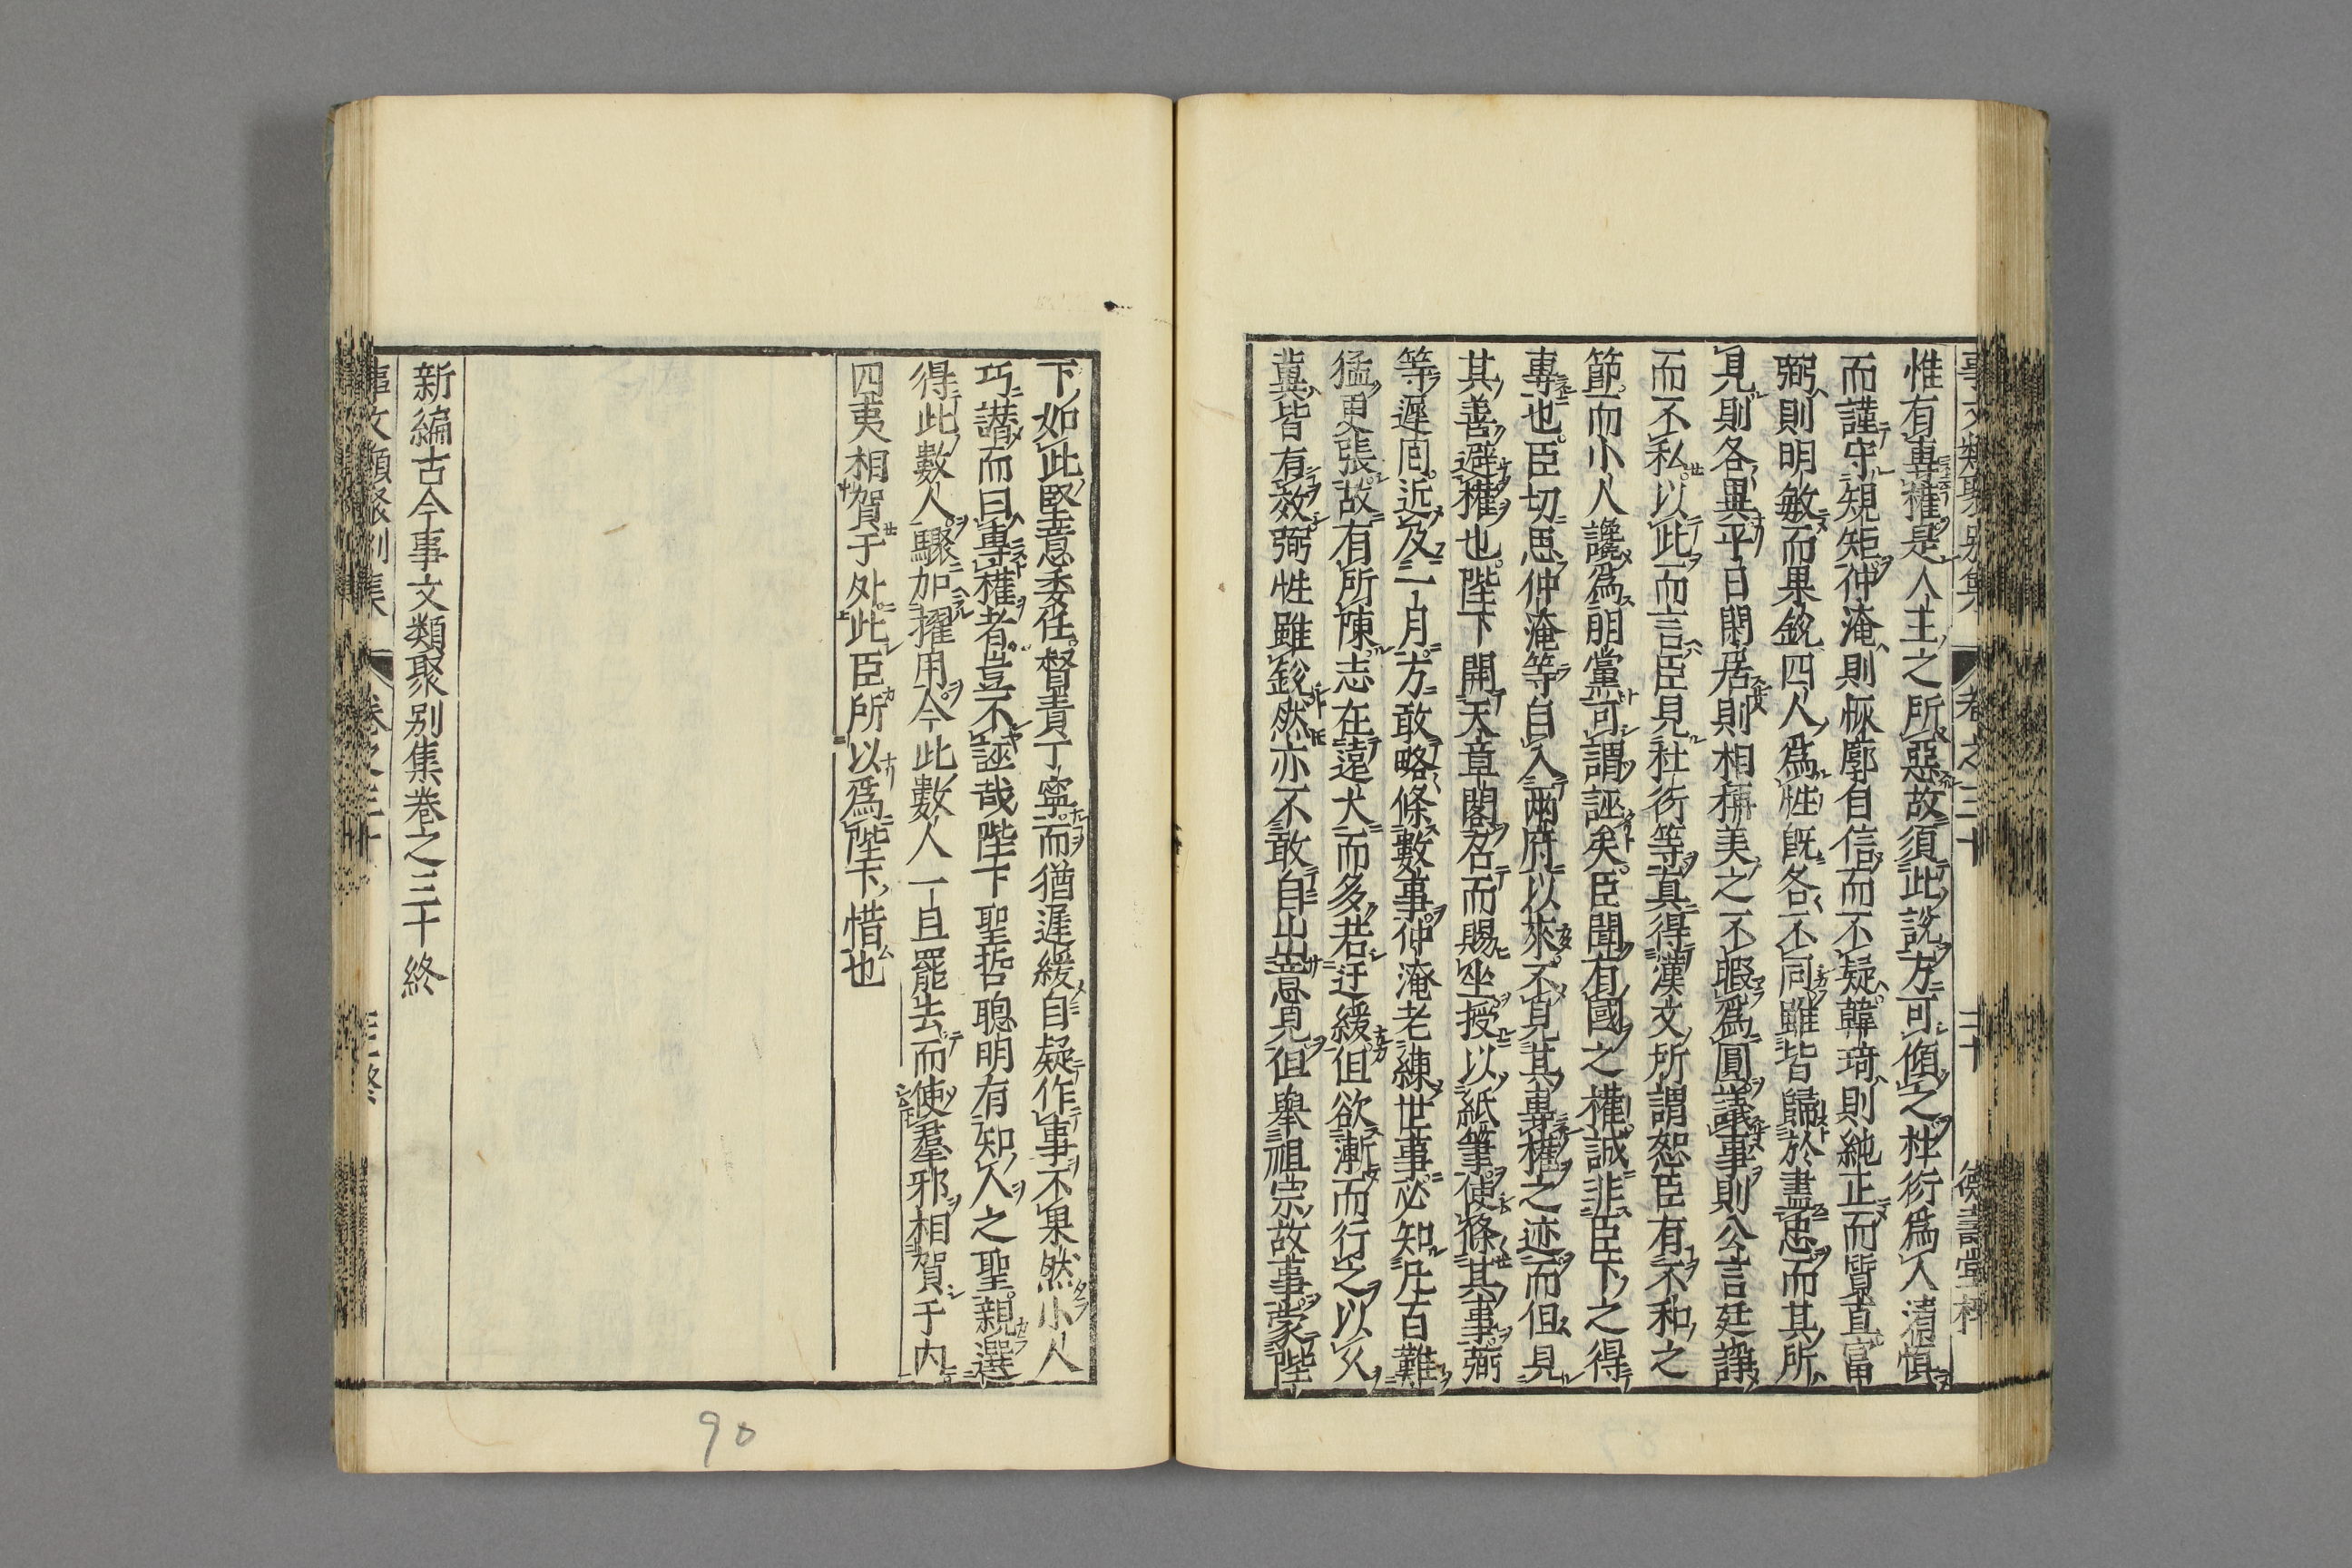 惟有專權是人主之所惡故須此說方可傾之杜衍爲人清慎
而謹守規矩仲淹則恢廓自信而不疑韓琦則純正而質直富
弼則明敏而果銳四人爲性旣各不同雖皆歸於盡忠而其所
見則各異平日閑居則相稱美之不暇爲國議事則公言廷諍
而不私以此而言臣見杜衍等真得漢文所謂忠臣有不和之
節而小人讒爲朋黨可謂誣矣臣聞有國之權誠非臣下之得
專也臣切思仲淹等自入兩府以來不見其專權之迹而但見
其善避權也陛下開天章閣召而賜坐授以紙筆使條其事弼
等遲回近及一月方敢略條數事仲淹老練世事必知凡百難
猛更張故有所陳志在遠大而多若迂緩但欲漸而行之以久
冀皆有效弼性雖銳然亦不敢自出意見但舉祖宗故事蒙陛
事文類聚別集 卷之三十 三十
下如此堅意委任督責丁寧而猶遲緩自疑作事不果然小人
巧譖而曰專權者豈不誣哉陛下聖哲聰明有知人之聖親選
得此數人驟加擢用今此數人一旦罷去而使羣邪相賀于內
四夷相賀于外此臣所以爲陛下惜也
新編古今事文類聚别集卷之三十終
事文類聚別集 卷之三十
90